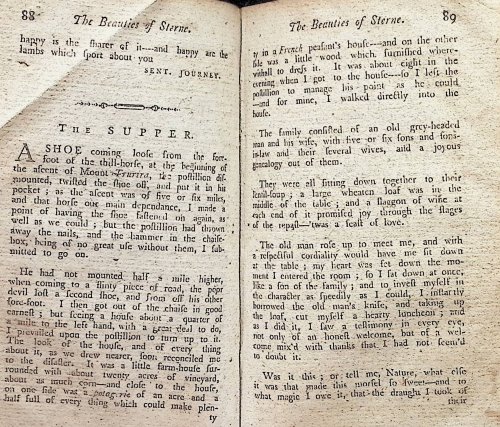 88
The Beauties of Sterne.
happy is the sharer of it---and happy are the
lambs which sport about you
SENT. JOURNEY.
THE SUPPER.
A SHOE coming loose from the fore-
foot of the thill-horse, at the beginning of
the ascent of Mount Taurira, the postillion dis-
mounted, twisted the shoe off, and put it in his
pocket; as the ascent was of five or six miles,
and that horse our main dependance, I made a
point of having the shoe fastened on again, as
well as we could; but the postillion had thrown
away the nails, and the hammer in the chaise-
box, being of no great use without them, I sub-
mitted to go on.
He had not mounted half a mile higher,
when coming to a flinty piece of road, the poor
devil lost a second shoe, and from off his other
fore-foot. I then got out of the chaise in good
earnest; but seeing a house about a quarter of
a mile to the left hand, with a great deal to do,
I prevailed upon the postillion to turn up to it.
The look of the house, and of every thing
about it, as we drew nearer, soon reconciled me
to the disaster. It was a little farm-house sur-
rounded with about twenty acres of vineyard,
about as much corn---and close to the house,
on one side was a potagerie of an acre and a
half full of every thing which could make plen-
ty
The Beauties of Sterne.
89
ty in a French peasant's house---and on the other
side was a little wood which furnished where-
withall to dress it. It was about eight in the
evening when I got to the house---so I left the
postillion to manage his point as he could
---and for mine, I walked directly into the
house.
The family consisted of an old grey-headed
man and his wife, with five or six sons and sons-
in-law and their several wives, and a joyous
genealogy out of them.
They were all sitting down together to their
lentil-soup; a large wheaten loaf was in the
middle of the table; and a flaggon of wine at
each end of it promised joy through the stages
of the repast---'twas a feast of love.
The old man rose up to meet me, and with
a respectful cordiality would have me sit down
at the table; my heart was set down the mo-
ment I entered the room; so I sat down at once,
like a son of the family; and to invest myself in
the character as speedily as I could, I instantly
borrowed the old man's knife, and taking up
the loaf, cut myself a hearty luncheon; and
as I did it, I saw a testimony in every eye,
not only of an honest welcome, but of a wel-
come mix'd with thanks that I had not seem'd
to doubt it.
Was it this; or tell me, Nature, what else
it was that made this morsel so sweet---and to
what magic I owe it, that the draught I took of
their